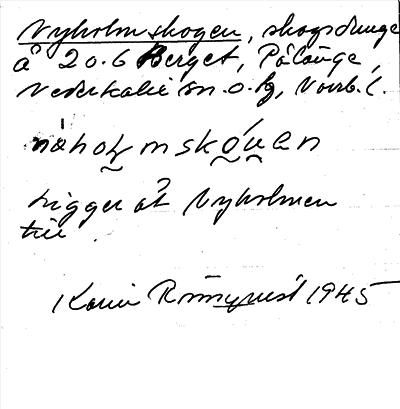 Nyholmskogen, skogsdunge
å 20.6 Berget, Pålänge,
Nederkalix sn. o. hg, Norrb. l.
nåholmskóuen
Ligger åt Nyholmen
till.
Karin Rönnqvist 1945